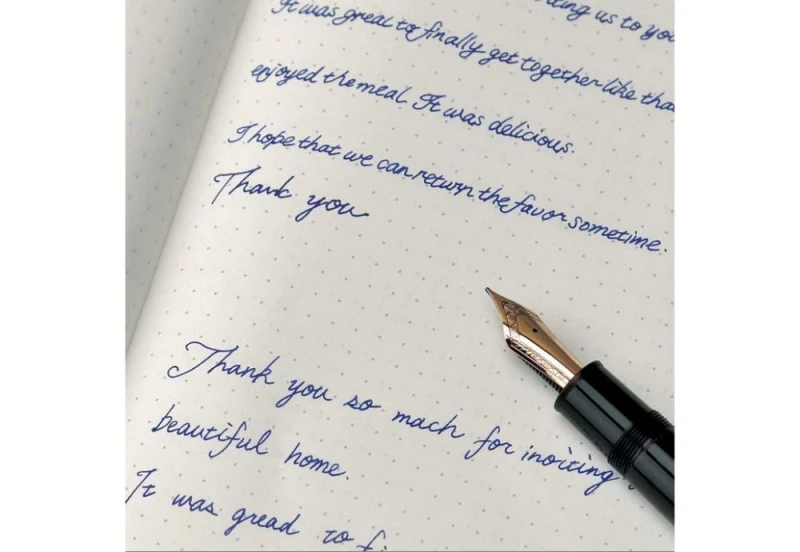 us to you
It was great to finally get together like that
enjoyed the meal. It was delicious.
I hope that we can return the favor sometime.
Thank you
Thank you so mach for inoiting
beautiful home.
It was gread to fi